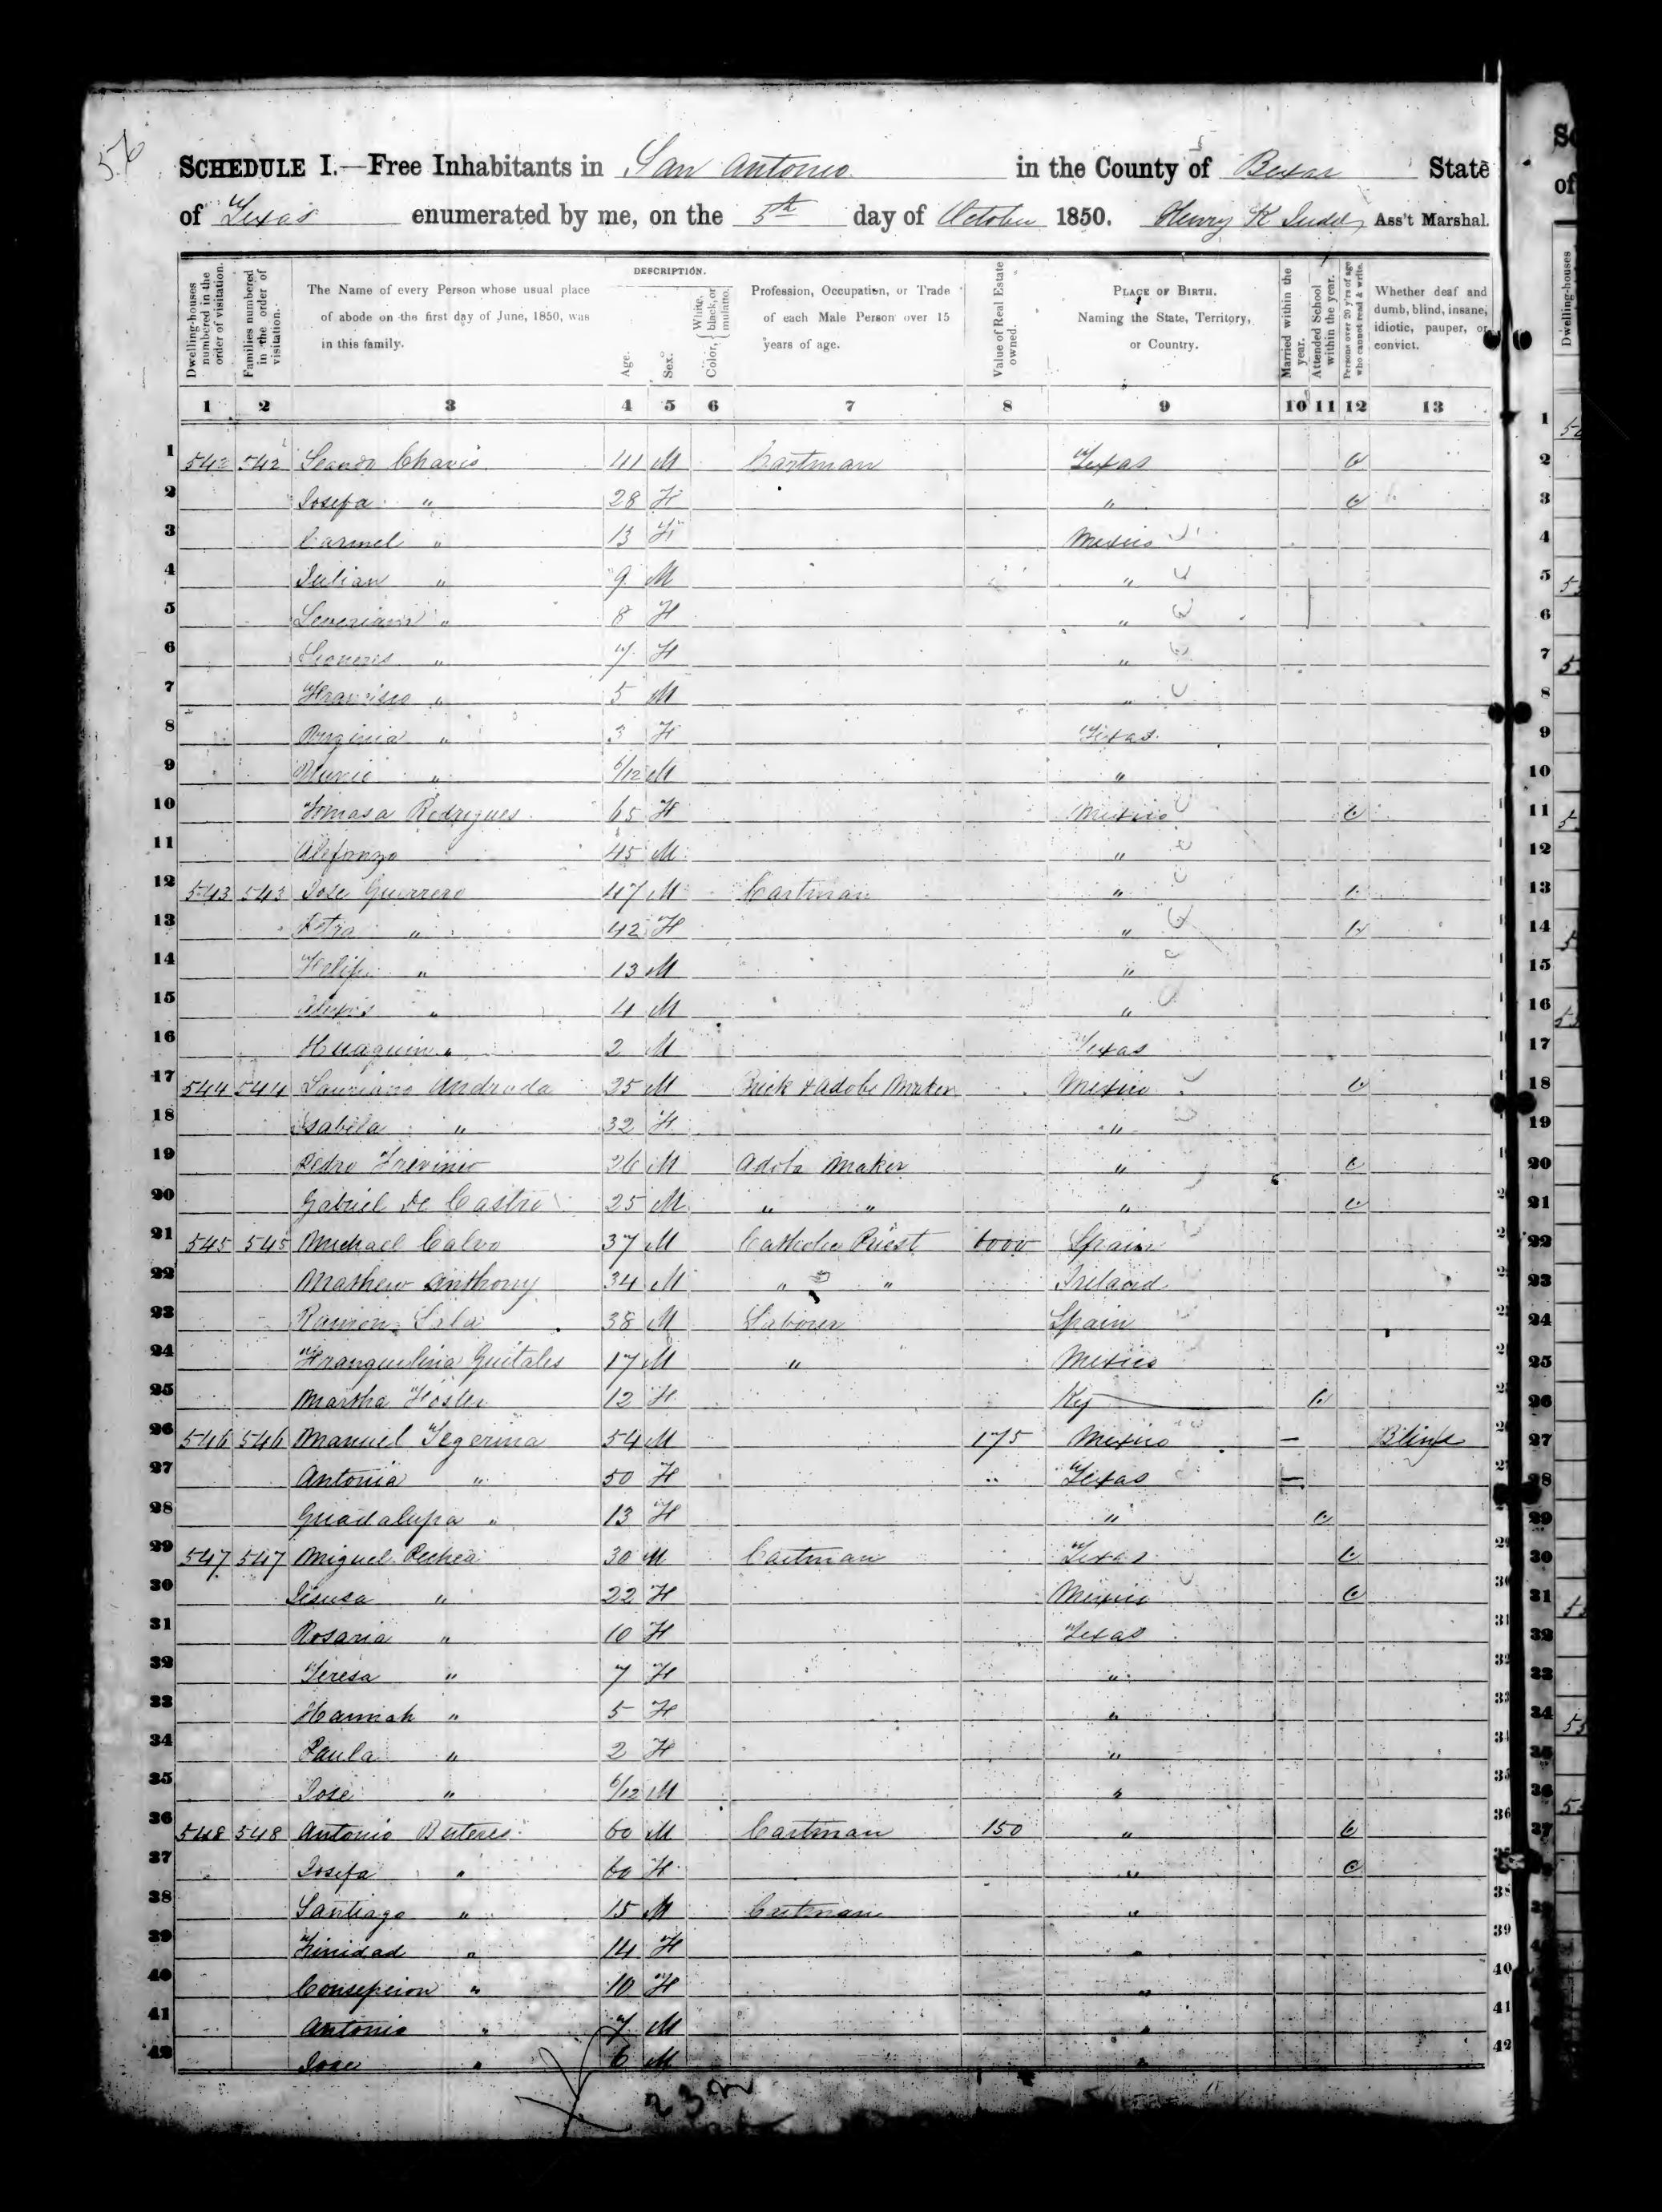 56
SCHEDULE I.—Free Inhabitants in San Antonio in the County of Bexar State
of Texas enumerated by me, on the 5th day of October 1850. Henry K Judd Ass't Marshal.
Dwelling-houses numbered in the order of visitation.
Families numbered in the order of visitation.
The Name of every Person whose usual place of abode on the first day of June, 1850, was in this family.
DESCRIPTION.
Age.
Sex.
Color, { White, black, or mulatto.
Profession, Occupation, or Trade of each Male Person over 15 years of age.
Value of Real Estate owned.
PLACE OF BIRTH. Naming the State, Territory, or Country.
Married within the year.
Attended School within the year.
Persons over 20 y'rs of age who cannot read & write.
Whether deaf and dumb, blind, insane, idiotic, pauper, or convict.
1 2 3 4 5 6 7 8 9 10 11 12 13
1 542 542 Leando Chavis 41 M Cartman Texas
2 Josefa " 28 F "
3 Carmel " 13 F Mexico
4 Julian " 9 M "
5 " 8 F "
6 " 7 F "
7 Francisco " 5 M "
8 Virginia " 3 F Texas
9 " 6/12 M "
10 Tomasa Rodrigues 65 F Mexico
11 Alefonzo 45 M "
12 543 543 Jose Guerrero 47 M Cartman "
13 Petra " 42 F "
14 Felipe " 13 M "
15 Alexis " 4 M "
16 Huaquin " 2 M Texas
17 544 544 Lauriano Andrada 25 M Brick & Adobe Maker Mexico
18 Isabela " 32 F "
19 Pedro Trevinio 26 M Adobe Maker "
20 Gabriel De Castro 25 M " " "
21 545 545 Michael Calvo 37 M Catholic Priest 6000 Spain
22 Mathew Anthony 34 M " " Ireland
23 Ramon Sala 38 M Laborer Spain
24 Franquelina Guitales 17 M " Mexico
25 Martha Foster 12 F Ky
26 546 546 Manuel Tegerina 54 M 175 Mexico — Blind
27 Antonia " 50 F " Texas —
28 Guadalupa " 13 F "
29 547 547 Miguel Pechea 30 M Cartman Texas
30 Jesusa " 22 F Mexico
31 Rosaria " 10 F Texas
32 Teresa " 7 F "
33 Hannah " 5 F "
34 Paula " 2 F "
35 Jose " 6/12 M "
36 548 548 Antonio Buteres 60 M Cartman 150 "
37 Josefa " 60 F "
38 Santiago " 15 M Cartman "
39 Trinidad " 14 F "
40 Consepcion " 10 F "
41 Antonio " 7 M "
42 Jose " 6 M "
232